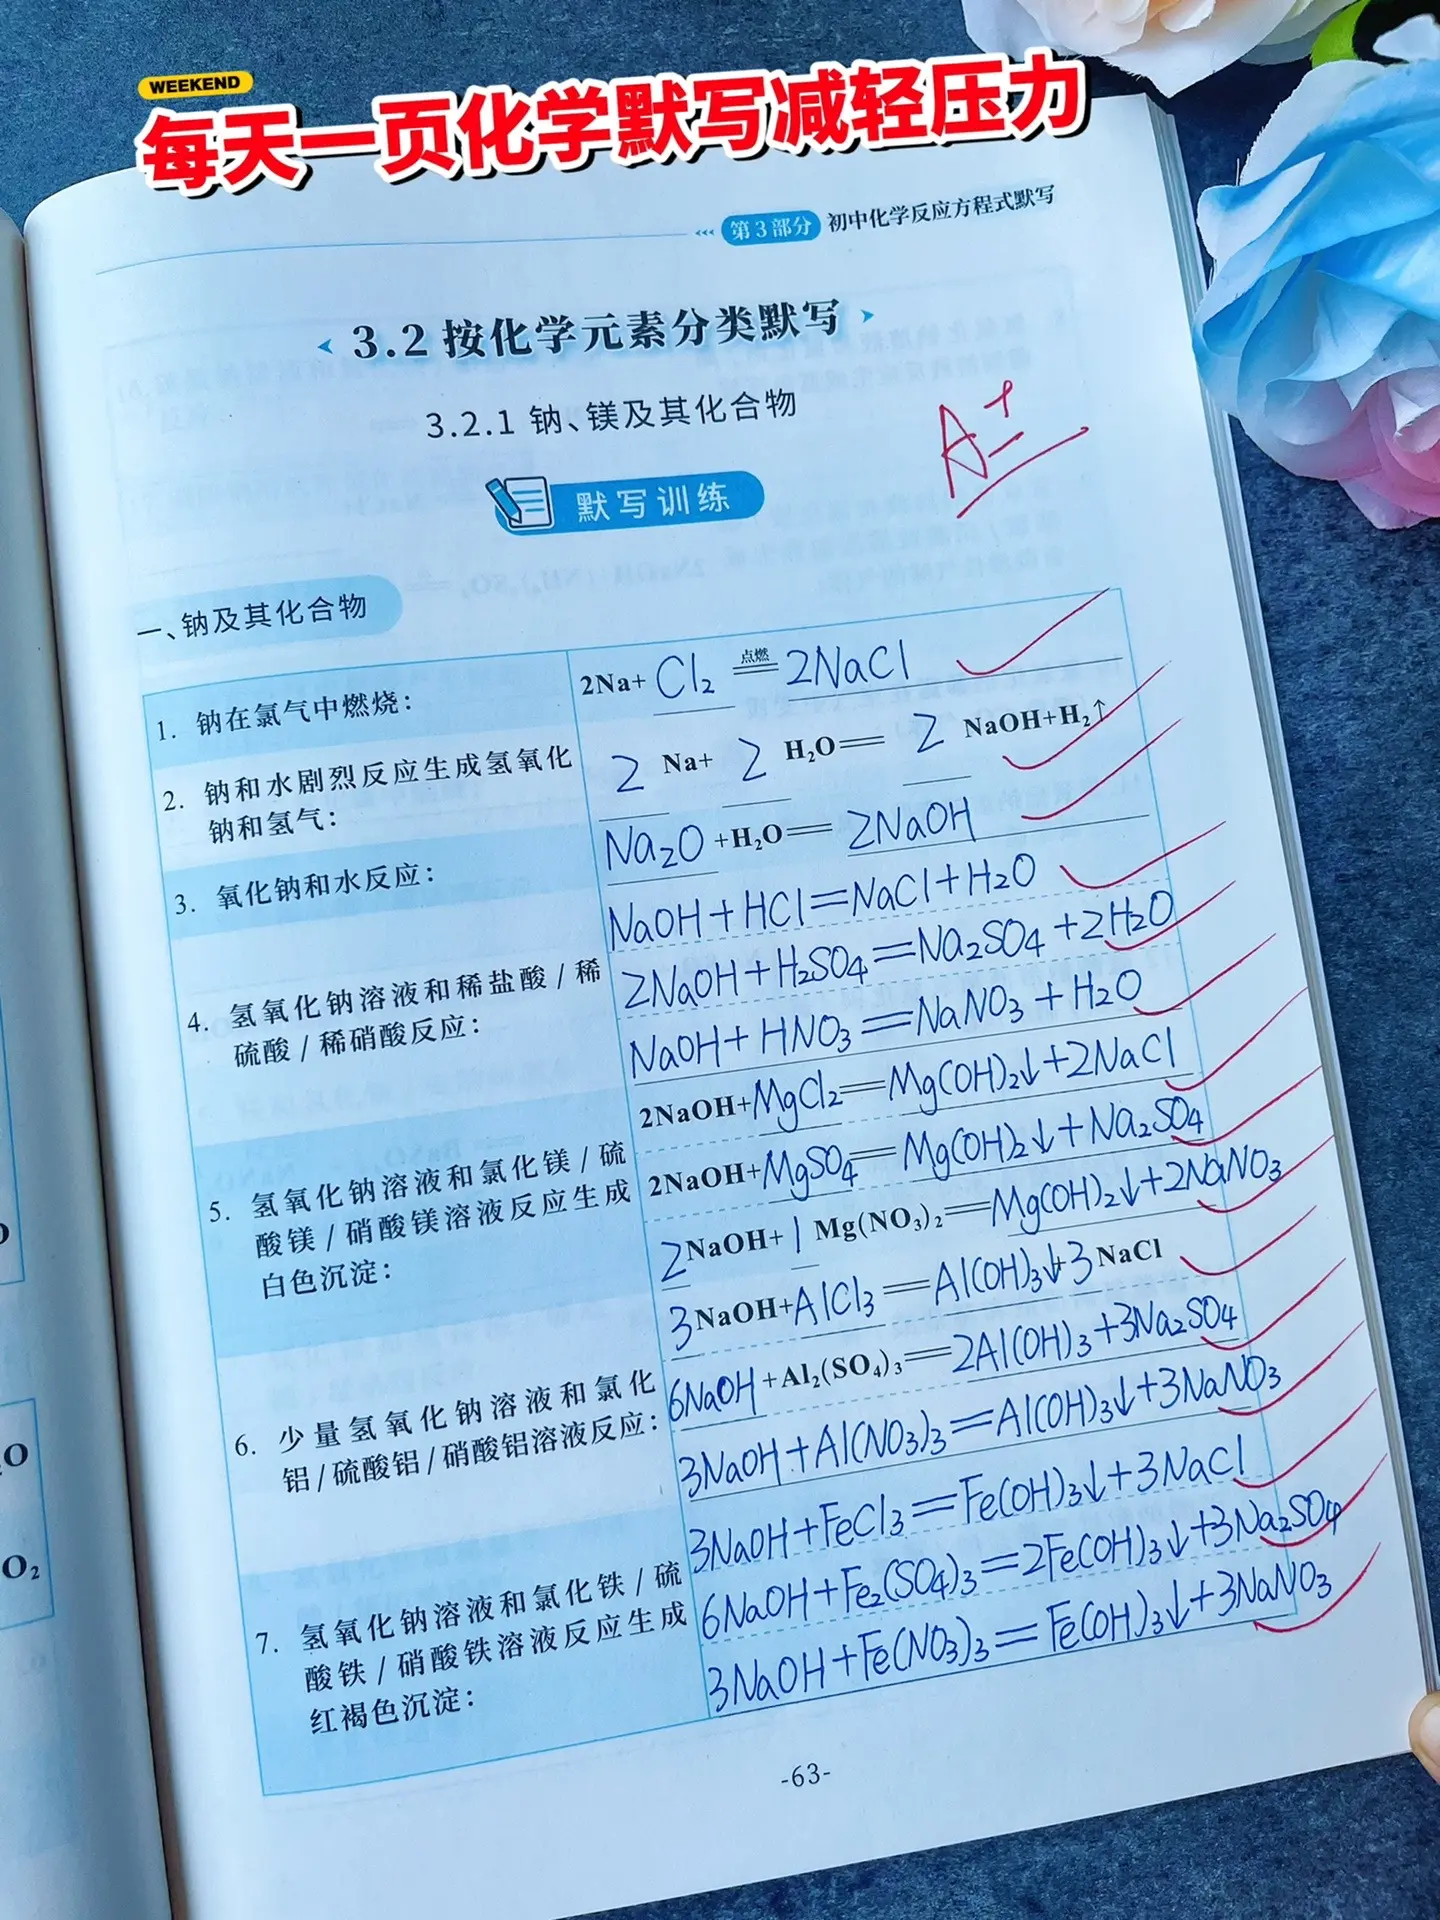 WEEKEND
每天一页化学默写减轻压力
第3部分 初中化学反应方程式默写
3.2 按化学元素分类默写
3.2.1 钠、镁及其化合物
A+
默写训练
一、钠及其化合物
1. 钠在氯气中燃烧:
2Na+ Cl₂ 点燃══ 2NaCl
2. 钠和水剧烈反应生成氢氧化
钠和氢气:
2 Na+ 2 H₂O══ 2 NaOH+H₂↑
3. 氧化钠和水反应:
Na₂O +H₂O══ 2NaOH
4. 氢氧化钠溶液和稀盐酸/稀
硫酸/稀硝酸反应:
NaOH+HCl══NaCl+H₂O
2NaOH+H₂SO₄══Na₂SO₄+2H₂O
NaOH+HNO₃══NaNO₃+H₂O
5. 氢氧化钠溶液和氯化镁/硫
酸镁/硝酸镁溶液反应生成
白色沉淀:
2NaOH+MgCl₂══Mg(OH)₂↓+2NaCl
2NaOH+MgSO₄══Mg(OH)₂↓+Na₂SO₄
2NaOH+ 1 Mg(NO₃)₂══Mg(OH)₂↓+2NaNO₃
6. 少量氢氧化钠溶液和氯化
铝/硫酸铝/硝酸铝溶液反应:
3NaOH+AlCl₃══Al(OH)₃↓+3NaCl
6NaOH+Al₂(SO₄)₃══2Al(OH)₃+3Na₂SO₄
3NaOH+Al(NO₃)₃══Al(OH)₃↓+3NaNO₃
7. 氢氧化钠溶液和氯化铁/硫
酸铁/硝酸铁溶液反应生成
红褐色沉淀:
3NaOH+FeCl₃══Fe(OH)₃↓+3NaCl
6NaOH+Fe₂(SO₄)₃══2Fe(OH)₃↓+3Na₂SO₄
3NaOH+Fe(NO₃)₃══Fe(OH)₃↓+3NaNO₃
-63-